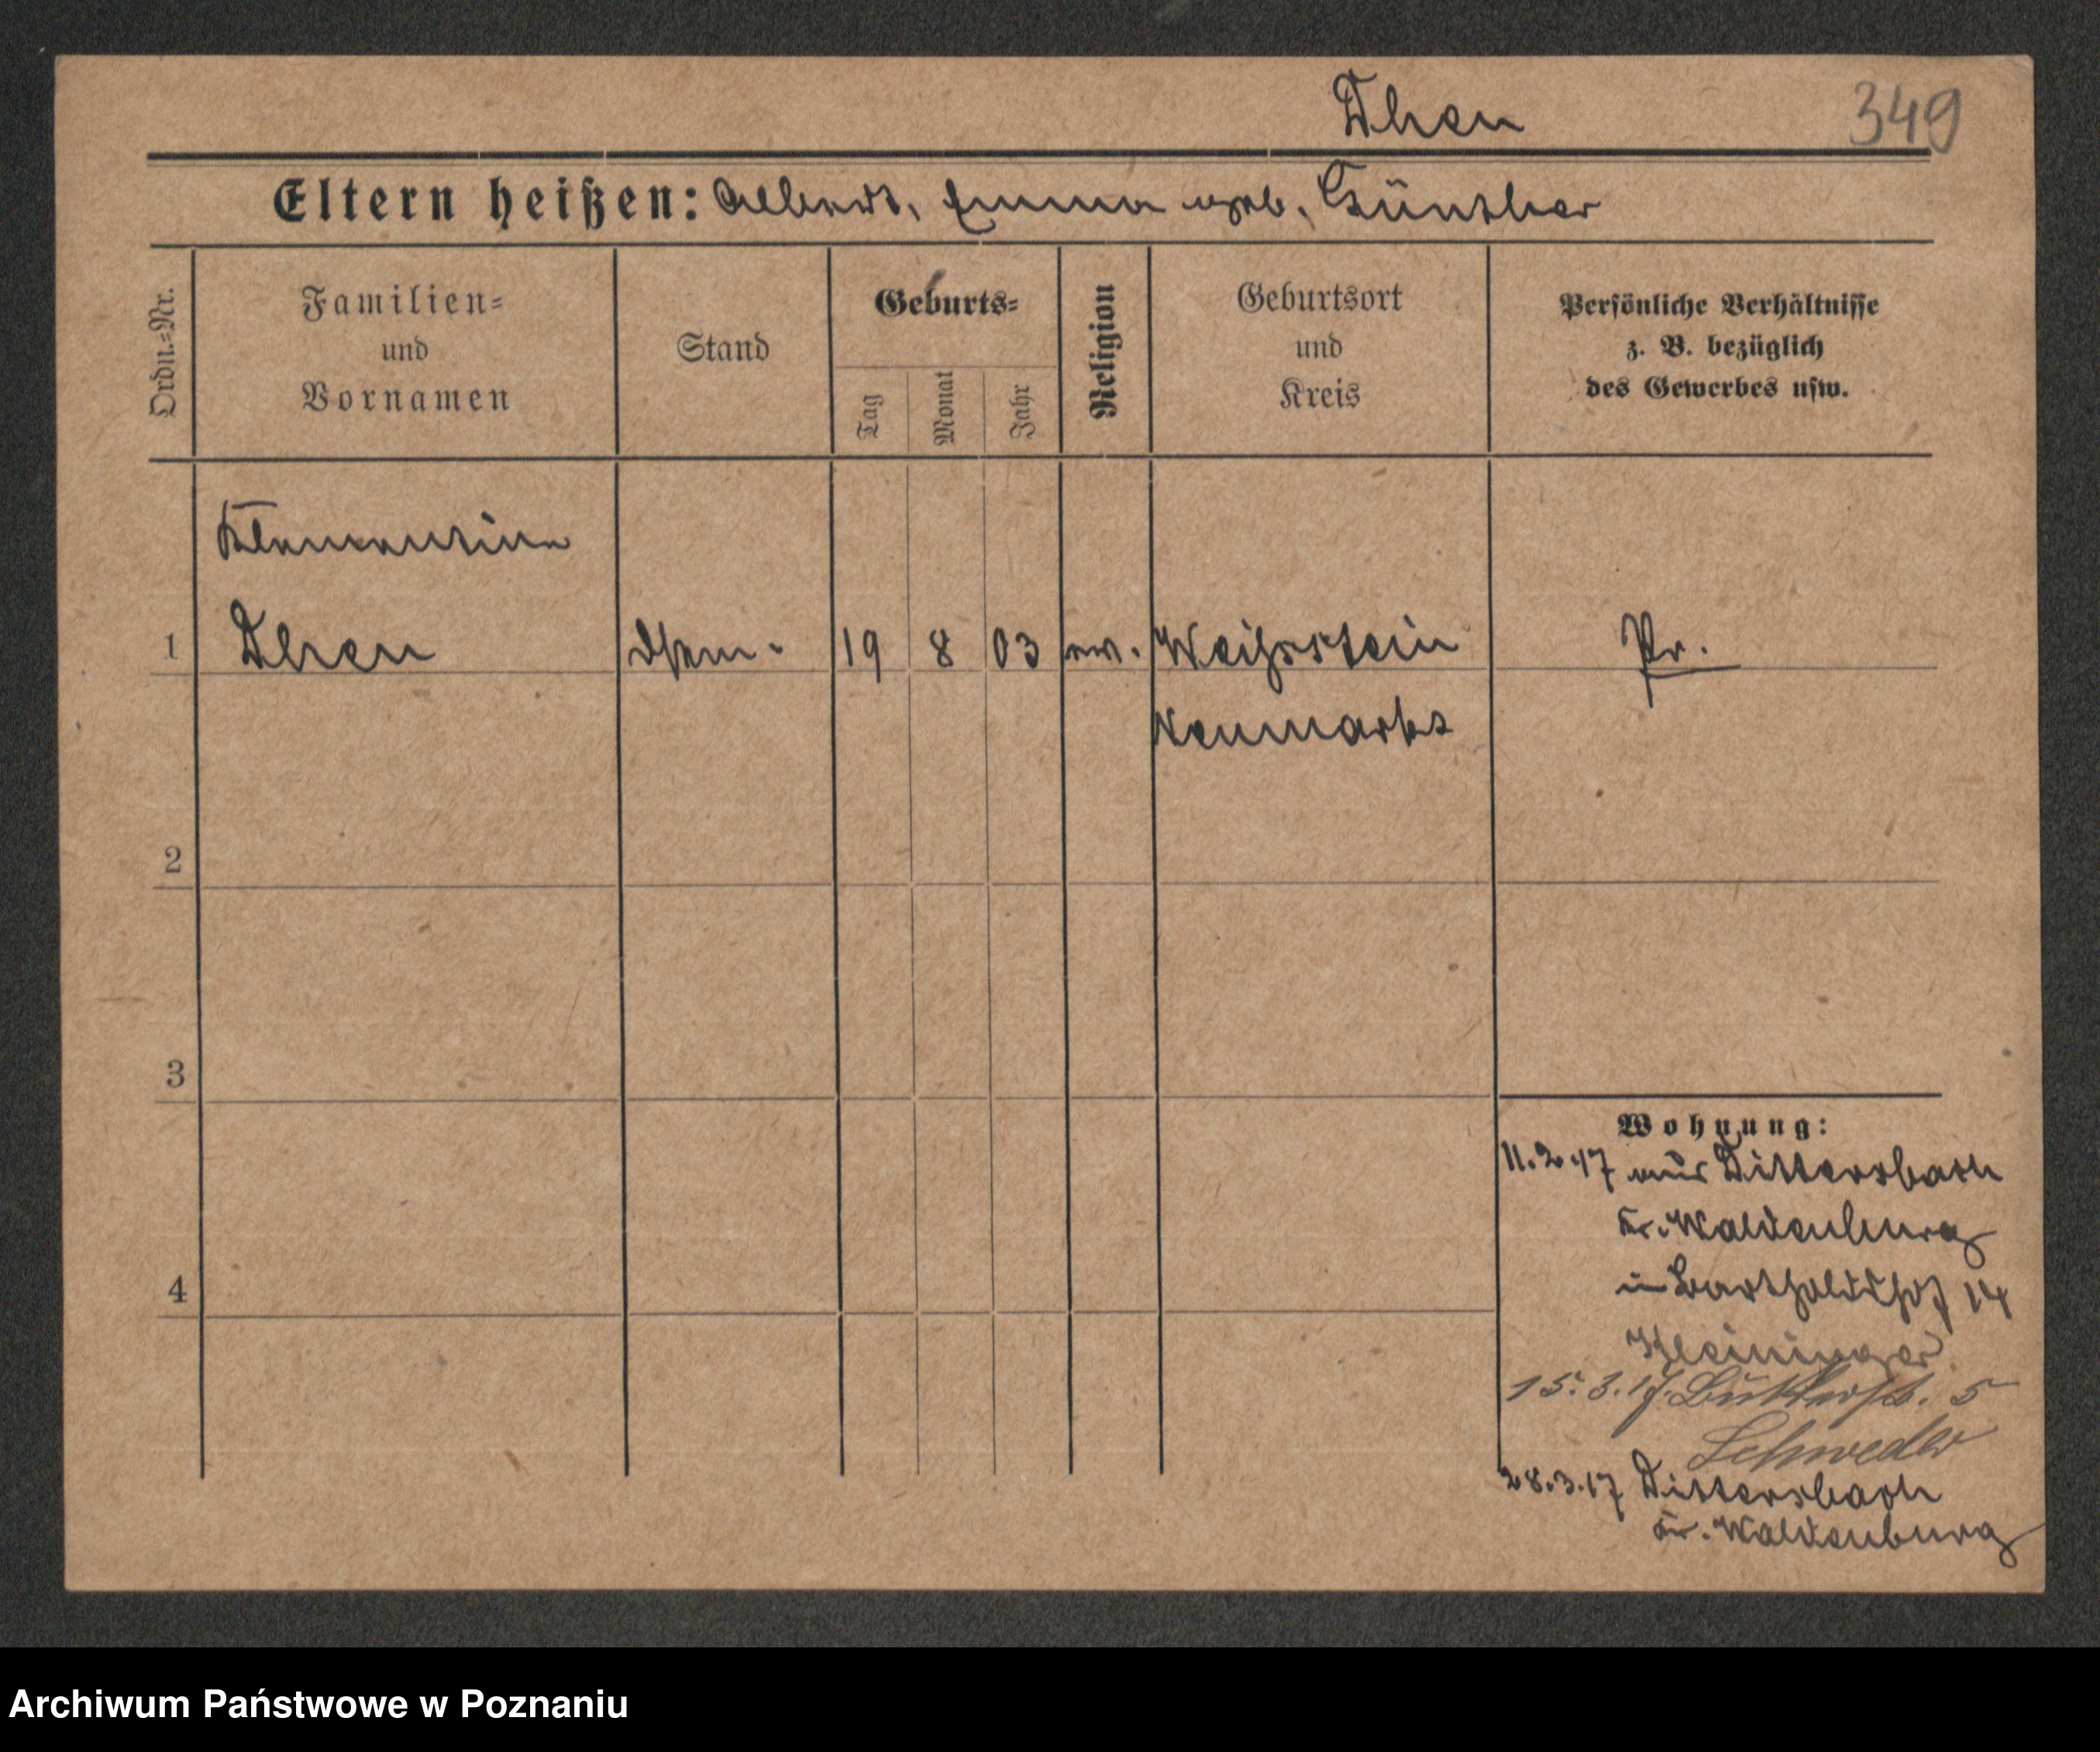 Dhen
349
Eltern heißen: Albert, Emma geb. Günther
Ordn.=Nr.
Familien=
und
Vornamen
Stand
Geburts=
Tag
Monat
Jahr
Religion
Geburtsort
und
Kreis
Persönliche Verhältnisse
z. B. bezüglich
des Gewerbes usw.
Klementine
1 Dhen 19 8 03 ev. Weißstein Pr.
Neumarkt
2
3
4
Wohnung:
11.2.17 aus Dittersbach
Kr. Waldenburg
in 14
15.3.17. 5
Schweder
28.3.17 Dittersbach
Kr. Waldenburg
Archiwum Państwowe w Poznaniu